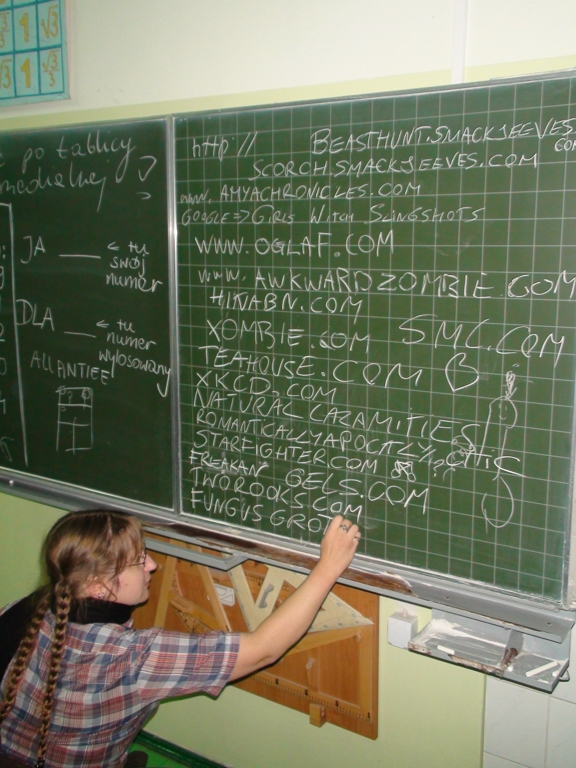 po tablicy
JA ___ <- tu
swój
numer
DLA ___ <- tu
numer
wylosowany
http://
BEASTHUNT.SMACKJEEVES.COM
SCORCH.SMACKJEEVES.COM
www.AMYACHRONICLES.COM
GOOGLE=> GIRLS WITCH SLINGSHOTS
WWW.OGLAF.COM
www.AWKWARDZOMBIE.COM
HINABN.COM
XOMBIE.COM SMC.COM
TEAHOUSE.COM
XKCD.COM
NATURAL CALAMITIES
STARFIGHTER.COM
FREAKAN GELS.COM
TWOROOKS.COM
FUNGUS GRO